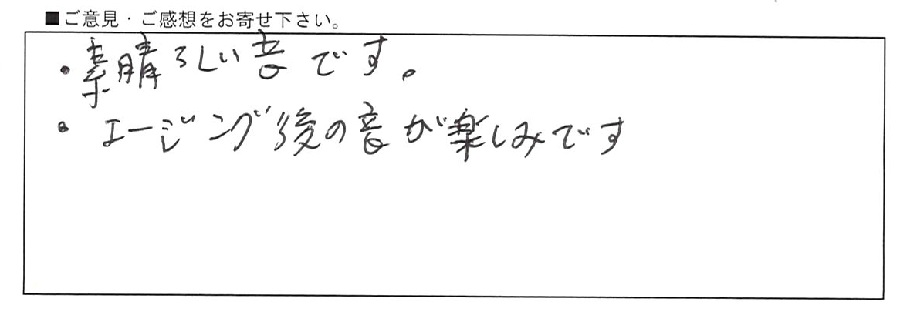 ■ご意見・ご感想をお寄せ下さい。
・素晴らしい音です。
・エージング後の音が楽しみです